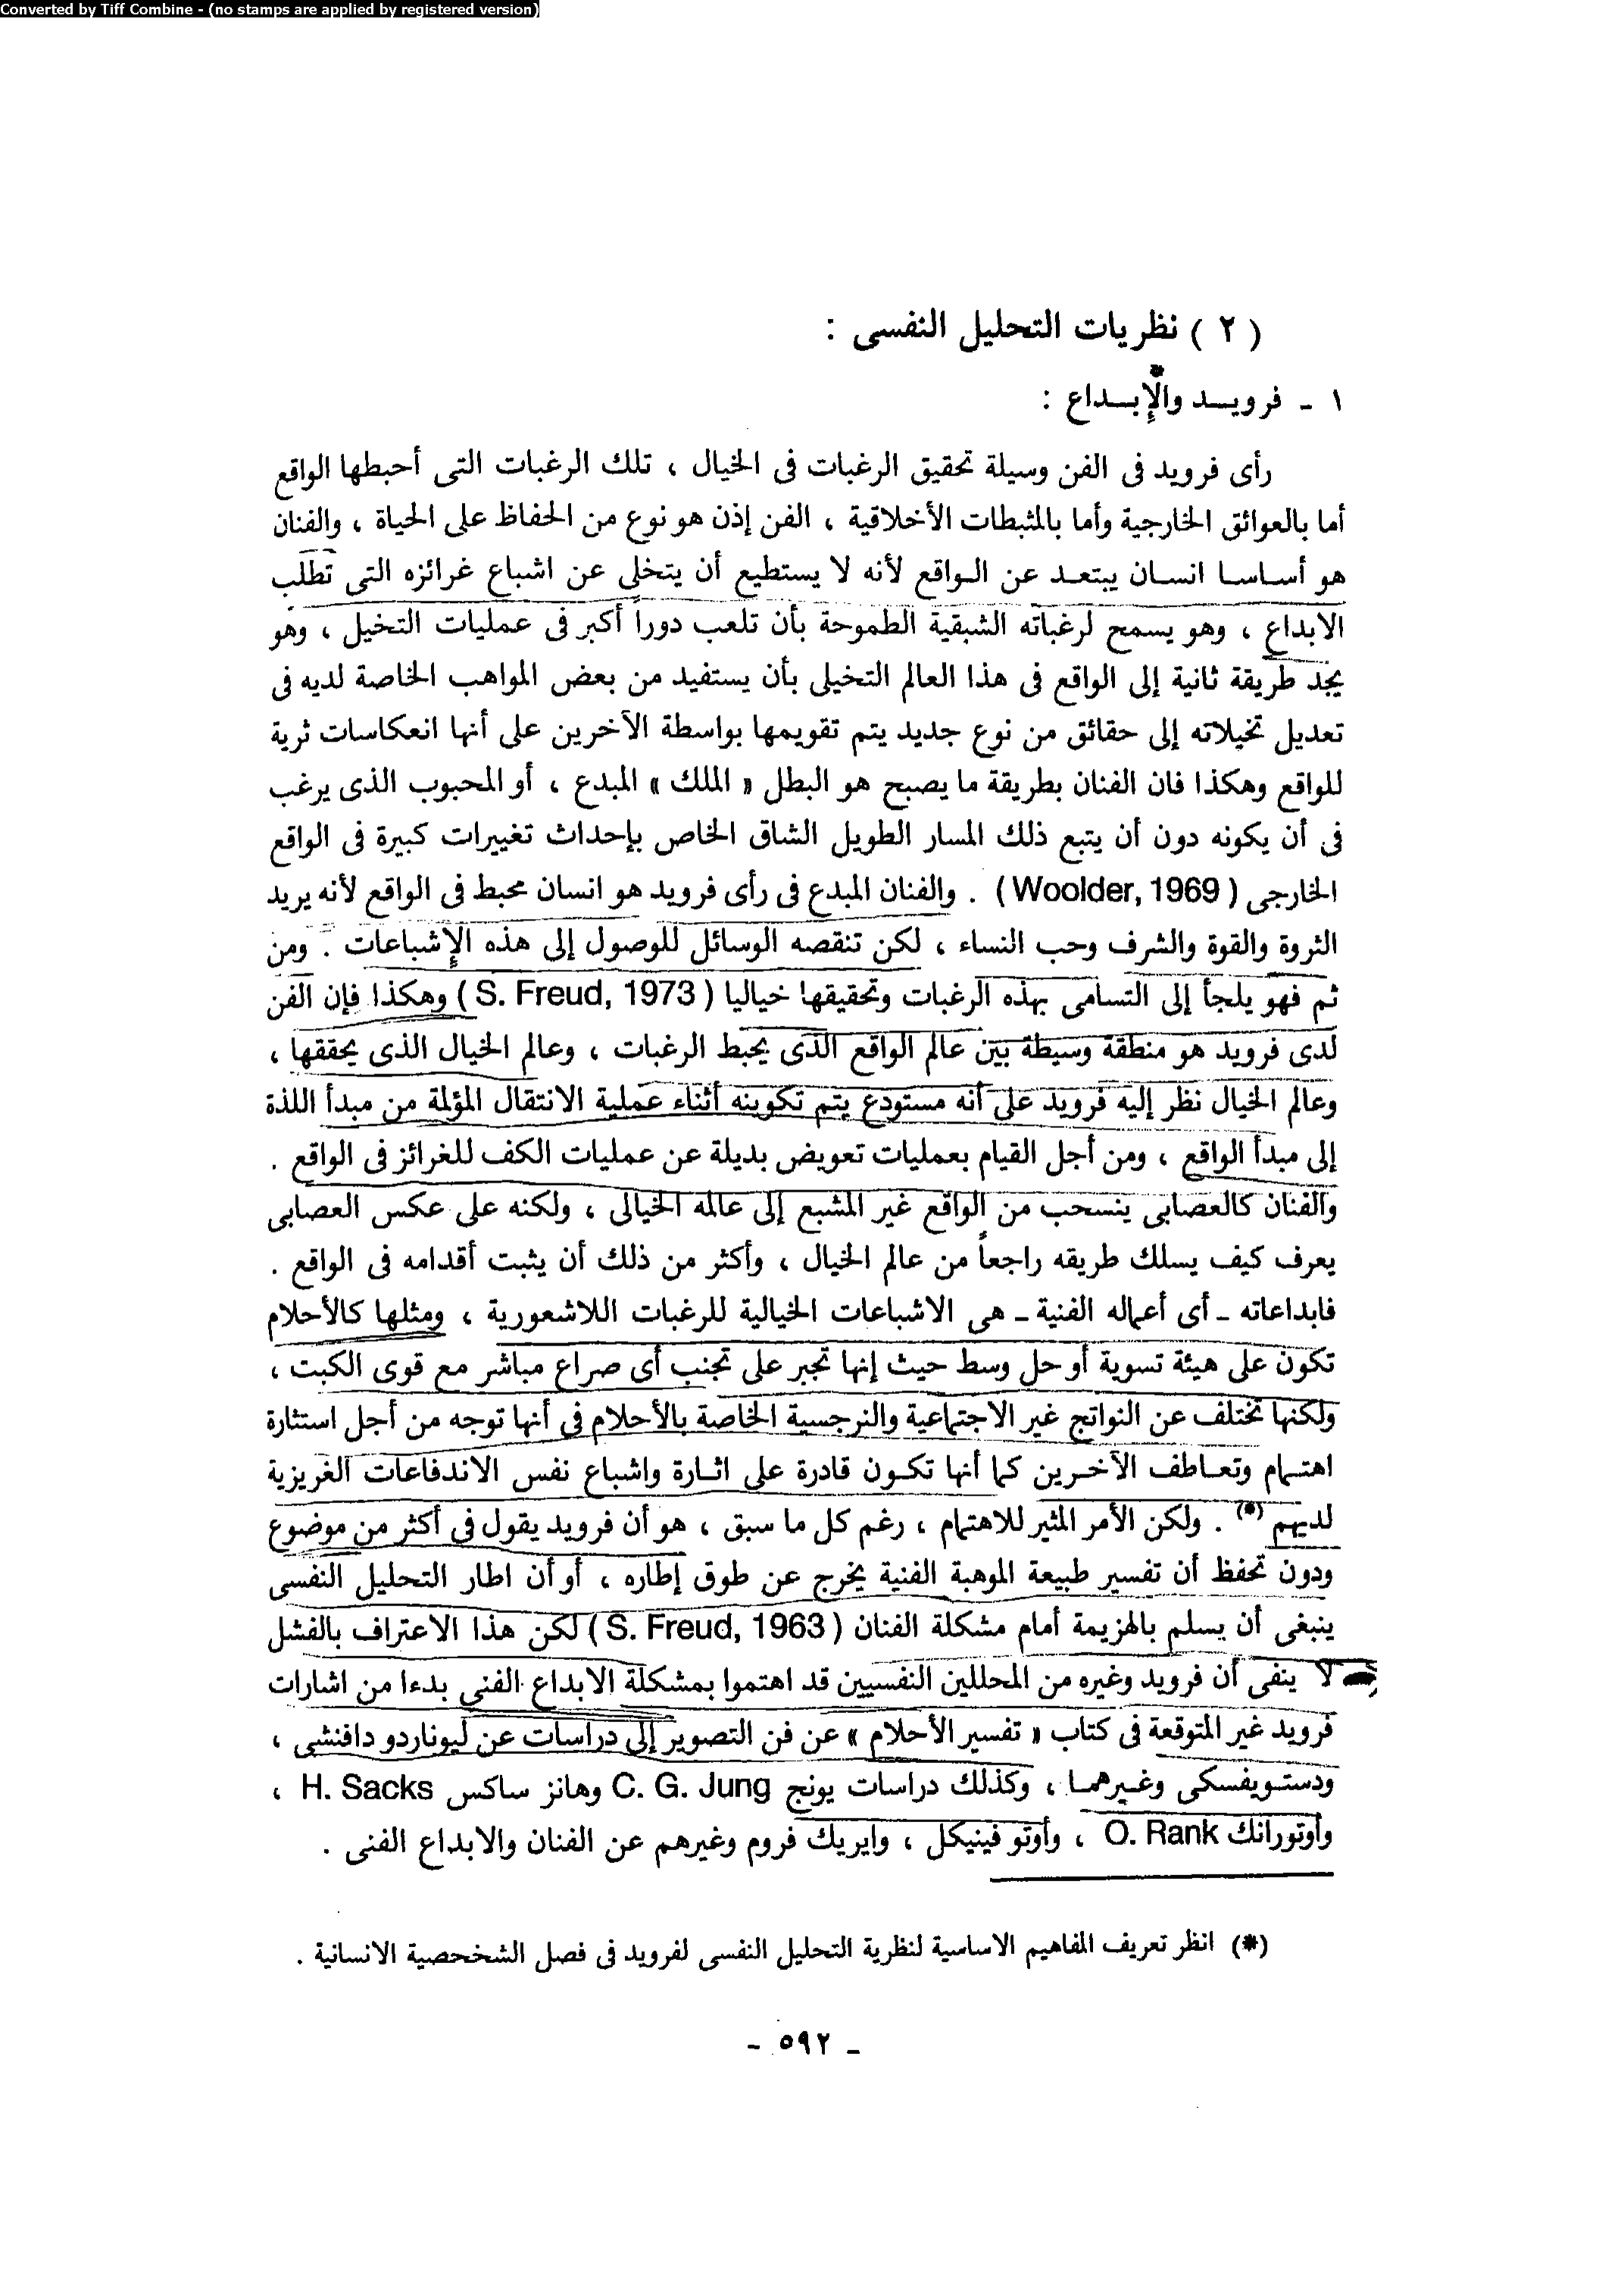 Converted by Tiff Combine - (no stamps are applied by registered version)
( ٢ ) نظريات التحليل النفسى :
١ - فرويد والإبداع :
رأى فرويد فى الفن وسيلة تحقيق الرغبات فى الخيال ، تلك الرغبات التى أحبطها الواقع
أما بالعوائق الخارجية وأما بالمثبطات الأخلاقية ، الفن إذن هو نوع من الحفاظ على الحياة ، والفنان
هو أساسا انسان يبتعد عن الواقع لأنه لا يستطيع أن يتخلى عن اشباع غرائزه التى تطلب
الابداع ، وهو يسمح لرغباته الشبقية الطموحة بأن تلعب دوراً أكبر فى عمليات التخيل ، وهو
يجد طريقة ثانية إلى الواقع فى هذا العالم التخيلى بأن يستفيد من بعض المواهب الخاصة لديه فى
تعديل تخيلاته إلى حقائق من نوع جديد يتم تقويمها بواسطة الآخرين على أنها انعكاسات ثرية
للواقع وهكذا فان الفنان بطريقة ما يصبح هو البطل « الملك » المبدع ، أو المحبوب الذى يرغب
فى أن يكونه دون أن يتبع ذلك المسار الطويل الشاق الخاص بإحداث تغييرات كبيرة فى الواقع
الخارجى ( Woolder, 1969 ) . والفنان المبدع فى رأى فرويد هو انسان محبط فى الواقع لأنه يريد
الثروة والقوة والشرف وحب النساء ، لكن تنقصه الوسائل للوصول إلى هذه الإشباعات . ومن
ثم فهو يلجأ إلى التسامى بهذه الرغبات وتحقيقها خياليا ( S. Freud, 1973 ) وهكذا فإن الفن
لدى فرويد هو منطقة وسيطة بين عالم الواقع الذى يحبط الرغبات ، وعالم الخيال الذى يحققها ،
وعالم الخيال نظر إليه فرويد على أنه مستودع يتم تكوينه أثناء عملية الانتقال المؤلمة من مبدأ اللذة
إلى مبدأ الواقع ، ومن أجل القيام بعمليات تعويض بديلة عن عمليات الكف للغرائز فى الواقع .
والفنان كالعصابى ينسحب من الواقع غير المشبع إلى عالمه الخيالى ، ولكنه على عكس العصابى
يعرف كيف يسلك طريقه راجعاً من عالم الخيال ، وأكثر من ذلك أن يثبت أقدامه فى الواقع .
فابداعاته - أى أعماله الفنية - هى الاشباعات الخيالية للرغبات اللاشعورية ، ومثلها كالأحلام
تكون على هيئة تسوية أو حل وسط حيث إنها تجبر على تجنب أى صراع مباشر مع قوى الكبت ،
ولكنها تختلف عن النواتج غير الاجتماعية والنرجسية الخاصة بالأحلام فى أنها توجه من أجل استثارة
اهتمام وتعاطف الآخرين كما أنها تكون قادرة على اثارة واشباع نفس الاندفاعات الغريزية
لديهم (*) . ولكن الأمر المثير للاهتمام ، رغم كل ما سبق ، هو أن فرويد يقول فى أكثر من موضوع
ودون تحفظ أن تفسير طبيعة الموهبة الفنية يخرج عن طوق إطاره ، أو أن اطار التحليل النفسى
ينبغى أن يسلم بالهزيمة أمام مشكلة الفنان ( S. Freud, 1963 ) لكن هذا الاعتراف بالفشل
لا ينفى أن فرويد وغيره من المحللين النفسيين قد اهتموا بمشكلة الابداع الفنى بدءا من اشارات
فرويد غير المتوقعة فى كتاب « تفسير الأحلام » عن فن التصوير إلى دراسات عن ليوناردو دافنشى ،
ودستويفسكى وغيرهما ، وكذلك دراسات يونج C. G. Jung وهانز ساكس H. Sacks ،
وأوتورانك O. Rank ، وأوتو فينيكل ، وايريك فروم وغيرهم عن الفنان والابداع الفنى .
(*) انظر تعريف المفاهيم الاساسية لنظرية التحليل النفسى لفرويد فى فصل الشخحصية الانسانية .
- ٥٩٢ -